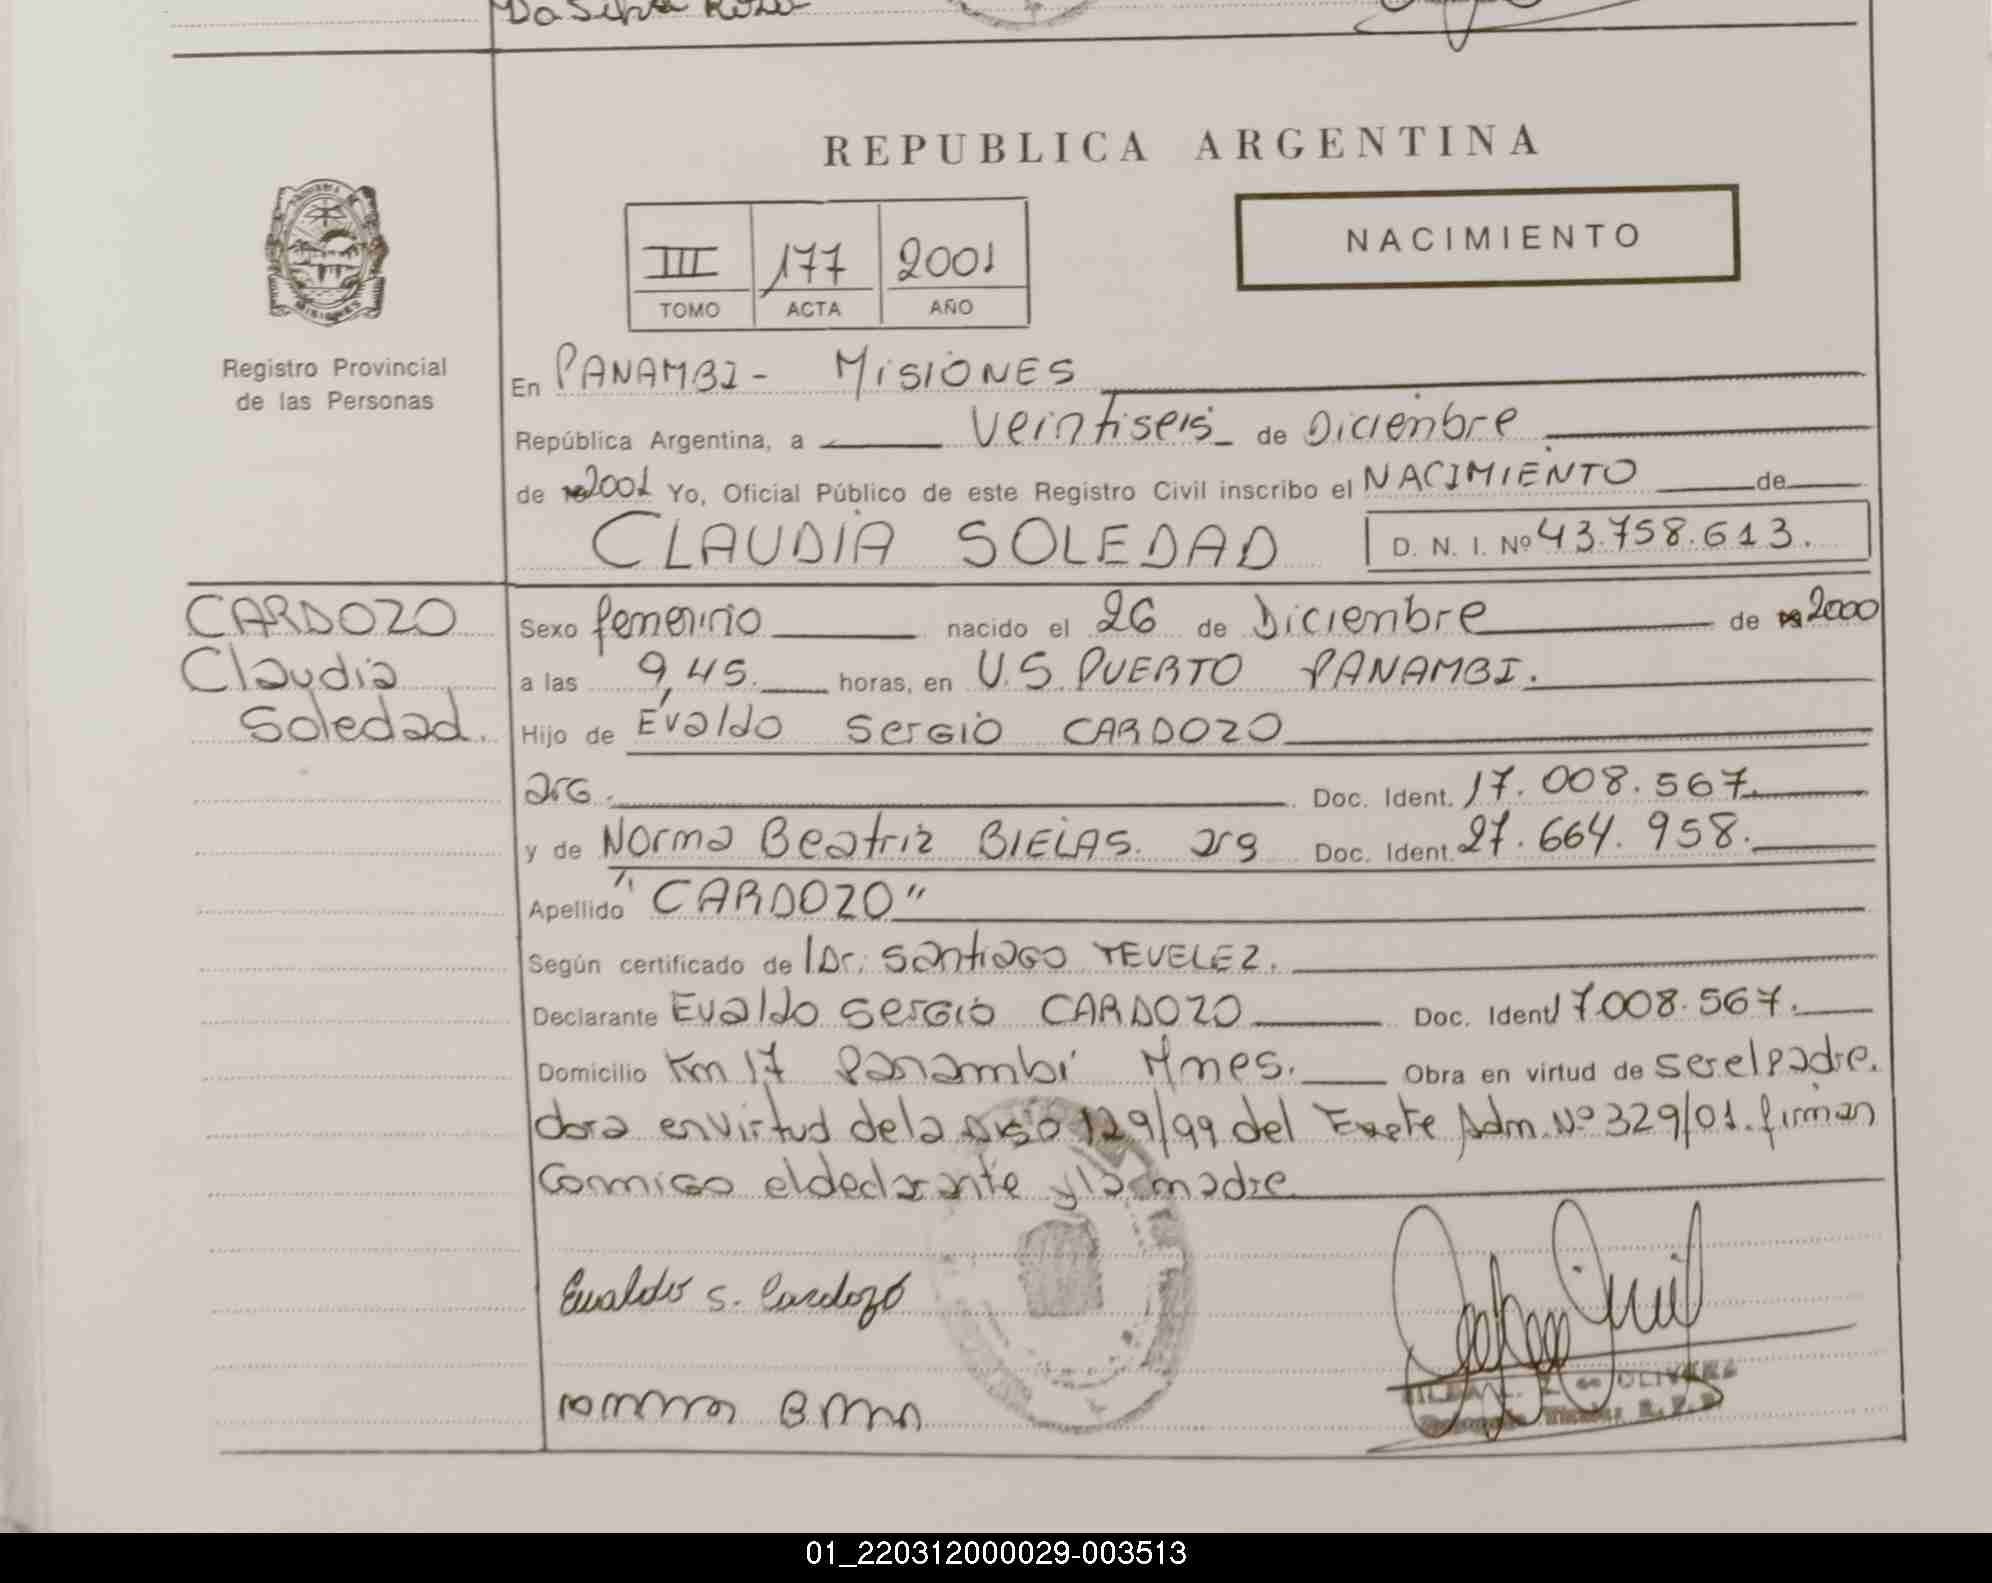 Da Silva
REPUBLICA ARGENTINA
NACIMIENTO
III 177 2001
TOMO ACTA AÑO
MISIONES
Registro Provincial
de las Personas
En PANAMBI - MISIONES
República Argentina, a veintiseis de Diciembre
de 2001 Yo, Oficial Público de este Registro Civil inscribo el NACIMIENTO de
CLAUDIA SOLEDAD D. N. I. Nº 43.758.613.
CARDOZO
Claudia
Soledad.
Sexo femenino nacido el 26 de Diciembre de 2000
a las 9,45. horas, en U.S. PUERTO PANAMBI.
Hijo de Evaldo Sergio CARDOZO
arg. Doc. Ident. 17.008.567.
y de Norma Beatriz BIELAS. arg Doc. Ident. 27.664.958.
Apellido "CARDOZO"
Según certificado de Dr. Santiago TEVELEZ.
Declarante Evaldo Sergio CARDOZO Doc. Ident 17.008.567.
Domicilio Km 17 Panambi Mnes. Obra en virtud de ser el padre.
dora en virtud de la 129/99 del Adm. Nº 329/01. firman
Conmigo el declarante y la madre
Evaldo S. Cardozo
OLIVERA
01_220312000029-003513